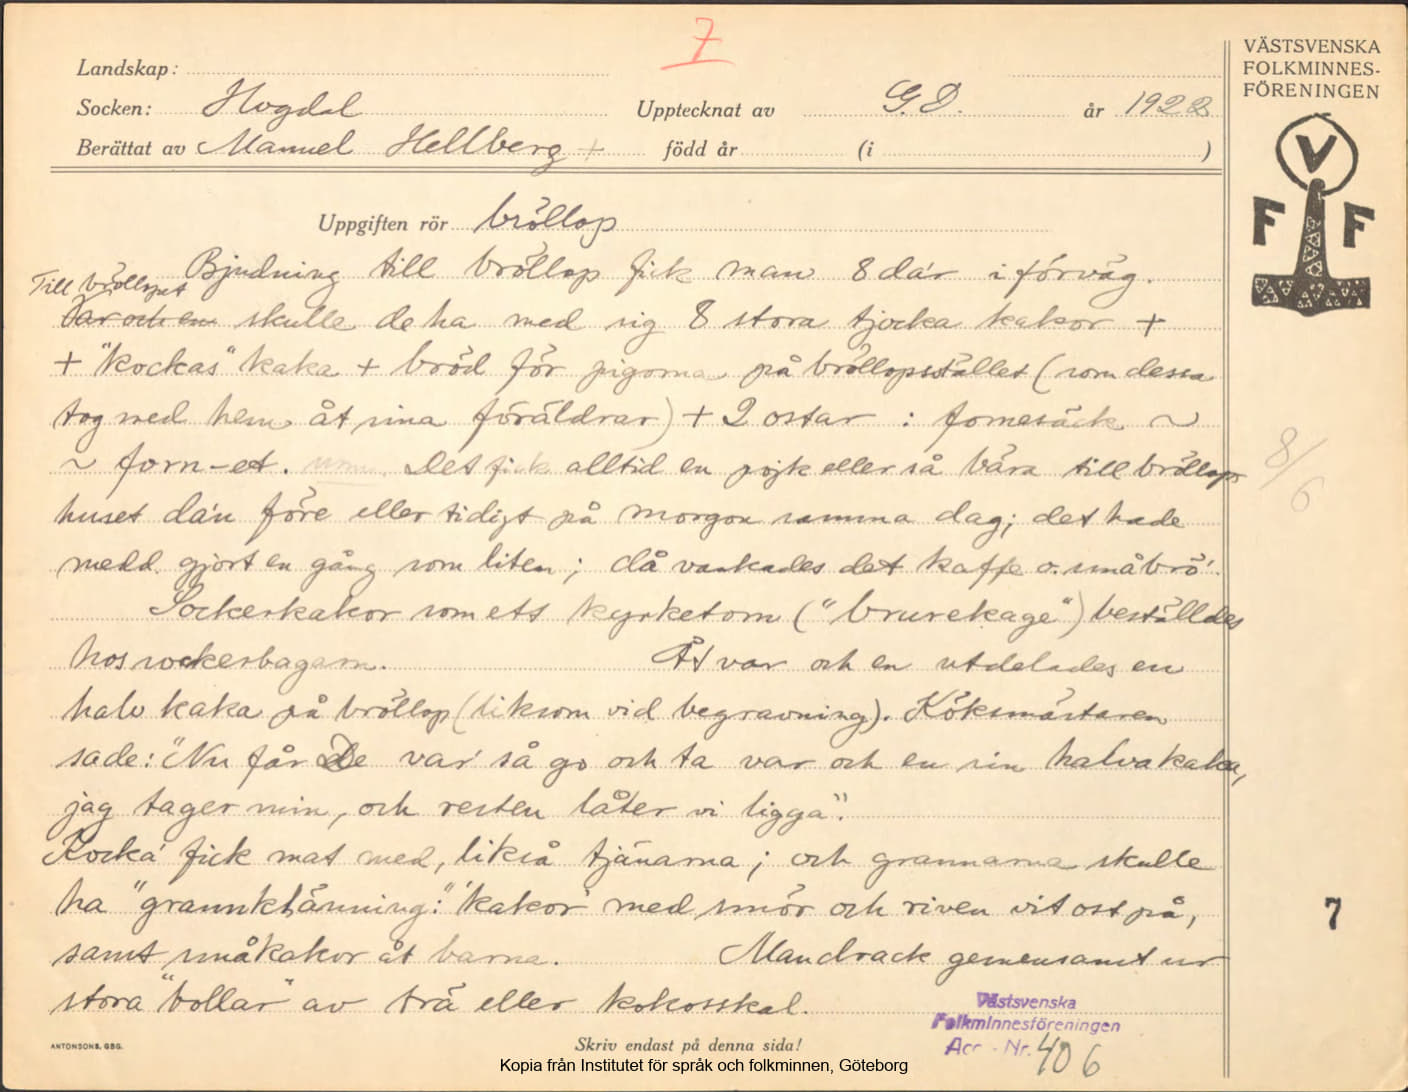 7
VÄSTSVENSKA
FOLKMINNES-
FÖRENINGEN
V
F F
Landskap:
Socken: Hogdal Upptecknat av G. D. år 1922
Berättat av Manuel Hellberg + född år (i )
Uppgiften rör bröllop
Bjudning till bröllop fick man 8 da'r i förväg.
Till bröllopet
Var och en skulle de ha med sig 8 stora tjocka kakor +
+ "kockas" kaka + bröd för pigorna på bröllopsstället (som dessa
tog med hem åt sina föräldrar) + 2 ostar : fornesäck ~
~ forn-et. Det fick alltid en pojk eller så bära till bröllops
huset da'n före eller tidigt på morgon samma dag; det hade
medd. gjort en gång som liten; då vankades det kaffe o. småbrö'.
Sockerkakor som ett kyrketorn ("brurekage") beställdes
hos sockerbagarn. Åt var och en utdelades en
halv kaka på bröllop (liksom vid begravning). Köksmästaren
sade: "Nu får De var' så go och ta var och en sin halva kaka,
jag tager min, och resten låter vi ligga".
Kocka' fick mat med, likså tjänarna; och grannarna skulle
ha "grannklänning:" 'kakor' med smör och riven vit ost på,
samt småkakor åt barna. Man drack gemensamt ur
stora "bollar" av trä eller kokosskal.
8/6
7
Västsvenska
Folkminnesföreningen
Acc - Nr. 406
ANTONSONS, GBG.
Skriv endast på denna sida!
Kopia från Institutet för språk och folkminnen, Göteborg